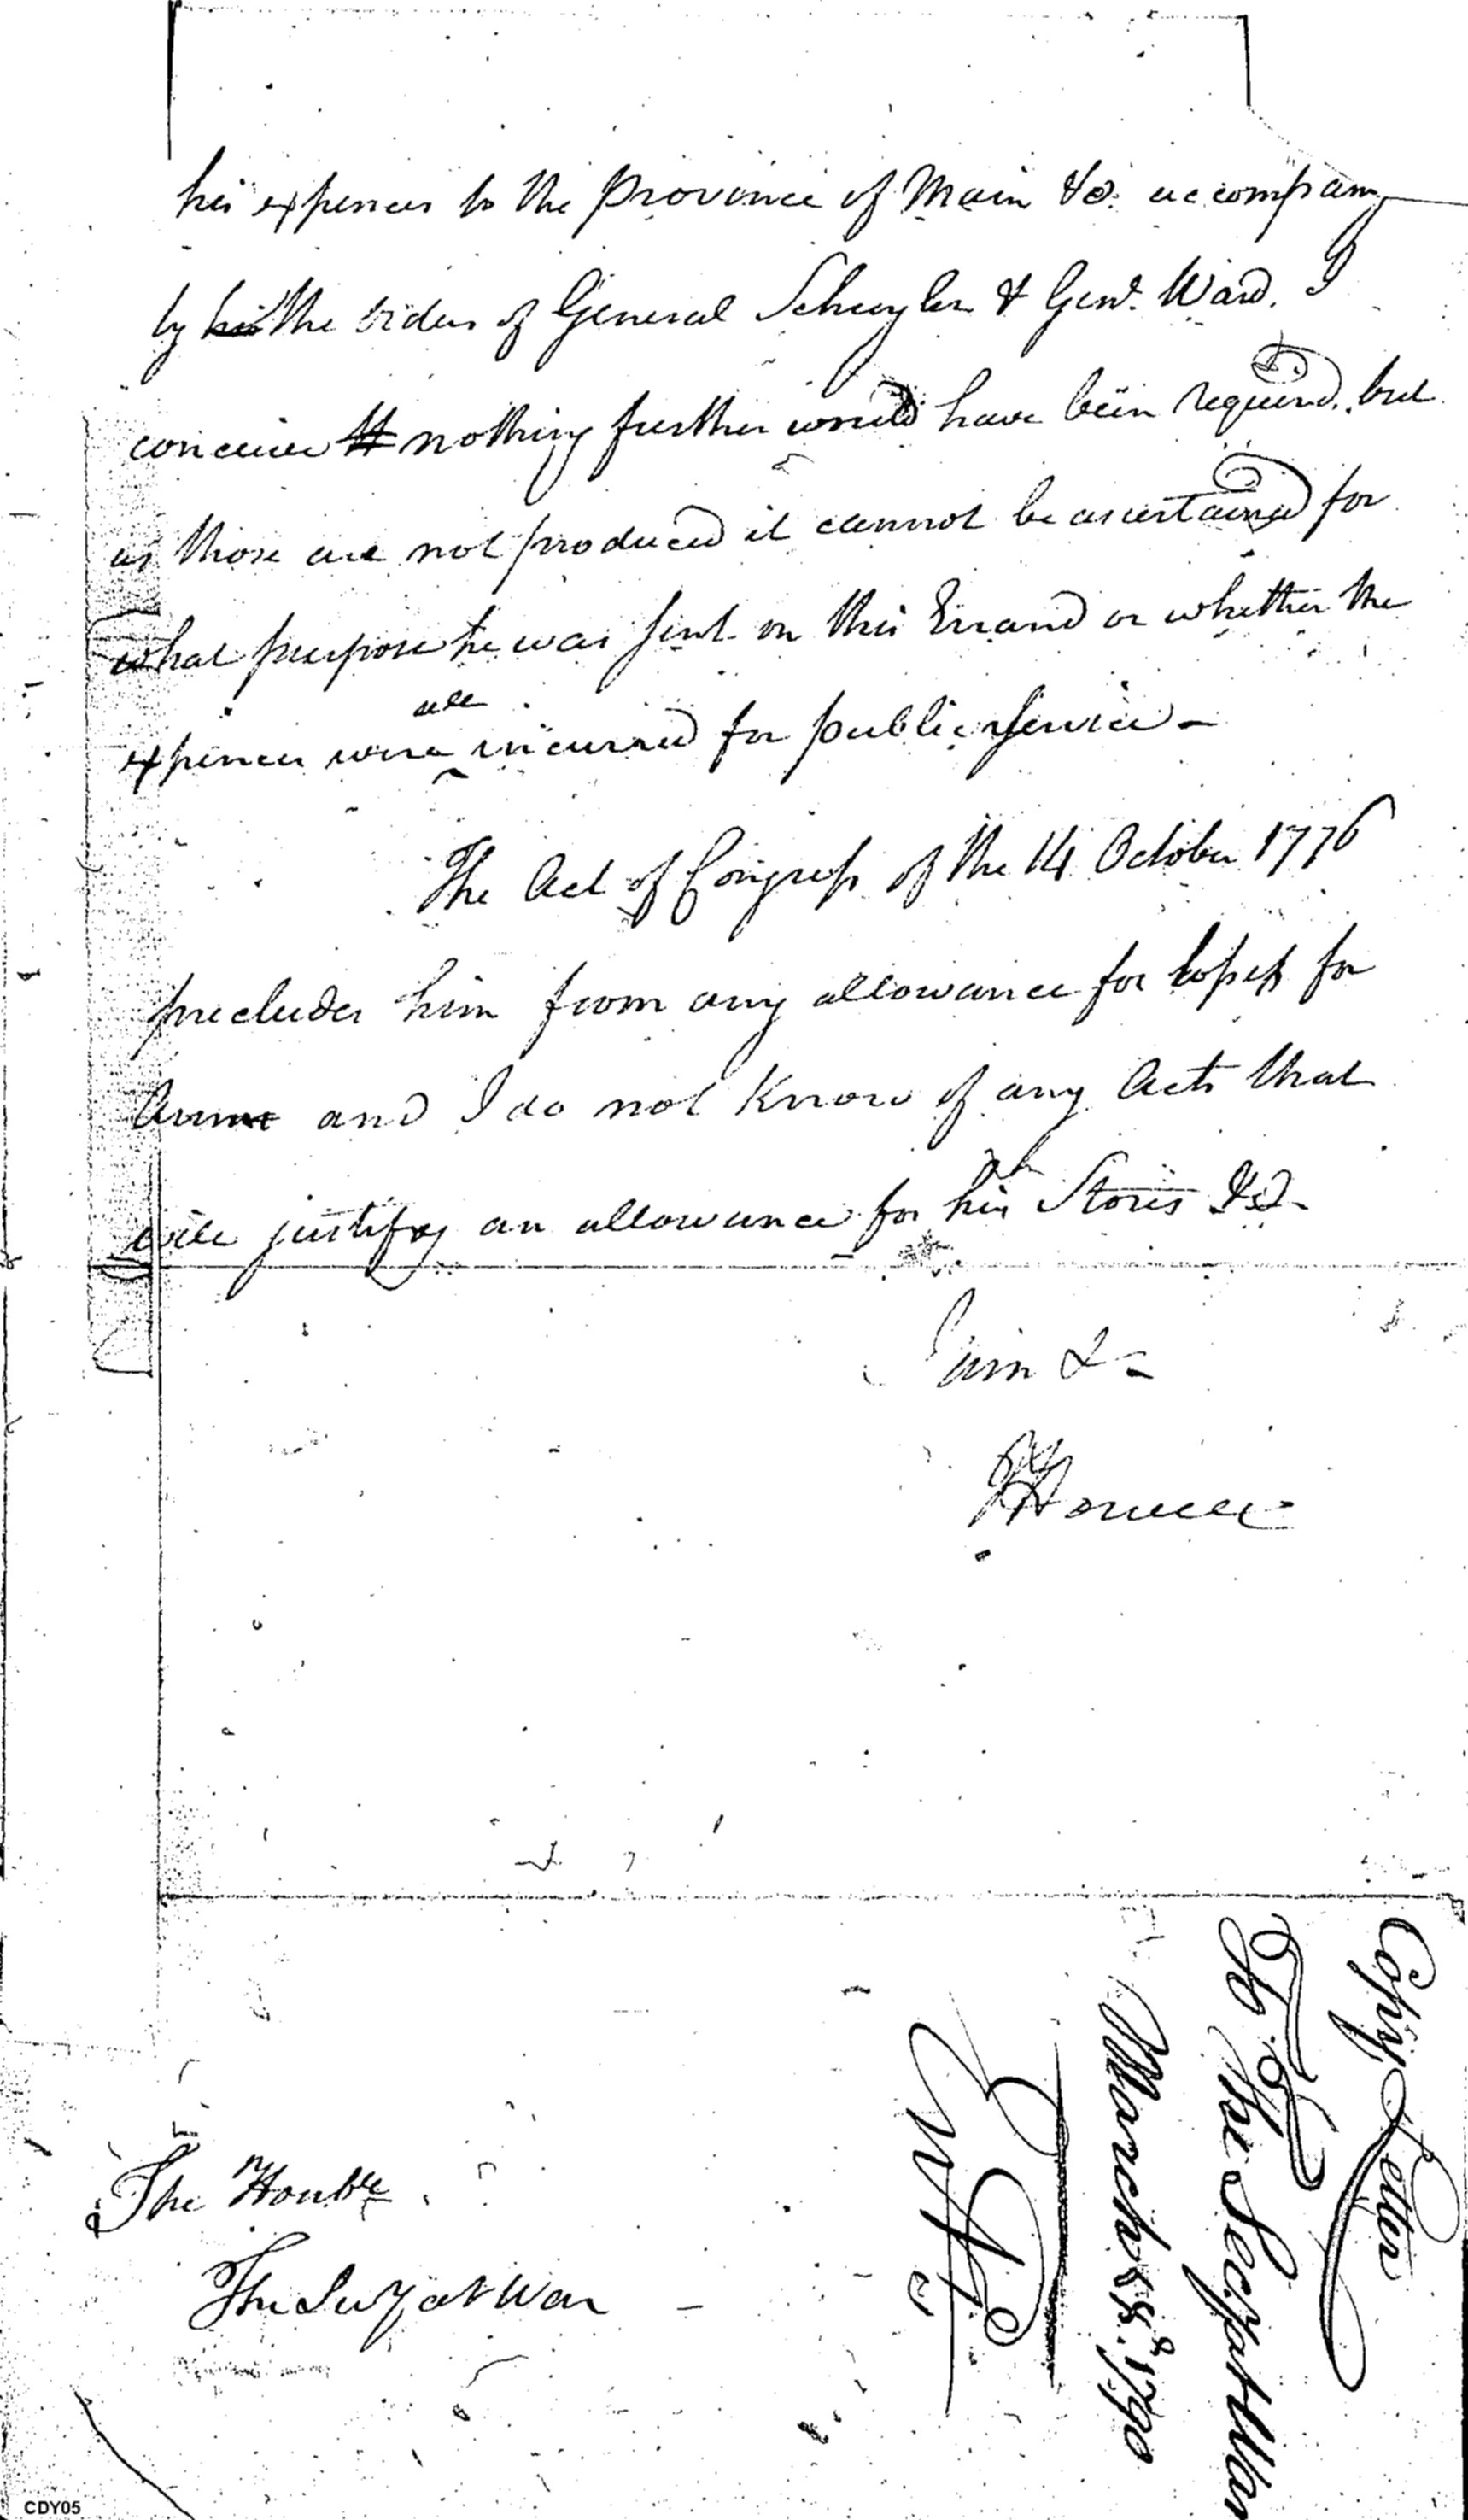 his expences to the Province of Main &c. accompany
by his the orders of General Schuyler & Genl. Ward. I
conceive nothing further would have been required. but
as those are not produced it cannot be ascertained for
what purpose he was sent on this Errand or whether the
all
expences were incurred for public service -
The Act of Congress of the 14 October 1776
precludes him from any allowance for losses for
and I do not know of any Acts that
will justify an allowance for his Stores &c -
I am & -
JHowell
The Honble
The Secy at War
Copy Letter
To The Secy at War
March 1790
CDY05